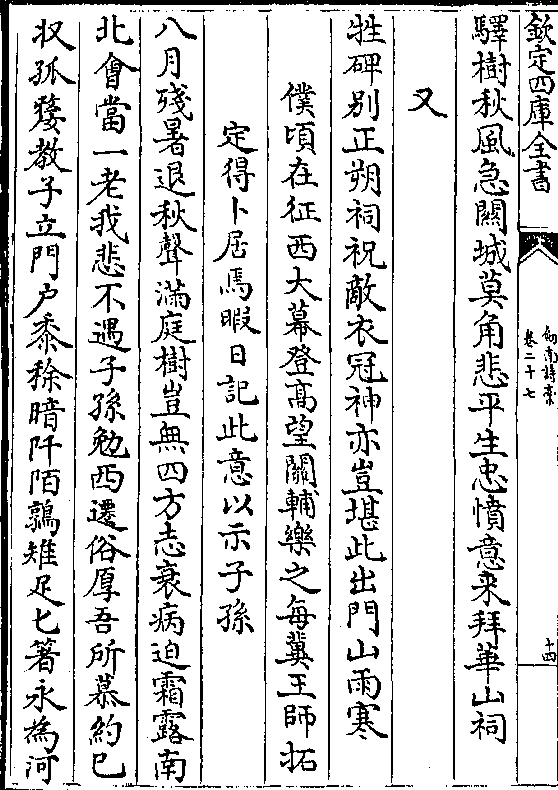 欽定四庫全書
劍南詩稾
卷二十七
十四
驛樹秋風急關城莫角悲平生忠憤意来拜華山祠
又
牲碑别正朔祠祝敵衣冠神亦豈堪此出門山雨寒
僕頃在征西大幕登髙望關輔樂之每冀王師拓
定得卜居焉暇日記此意以示子孫
八月殘暑退秋聲滿庭樹豈無四方志衰病迫霜露南
北會當一老我悲不遇子孫勉西遷俗厚吾所慕約已
収孤嫠教子立門户黍稌暗阡陌鶉雉足匕箸永為河